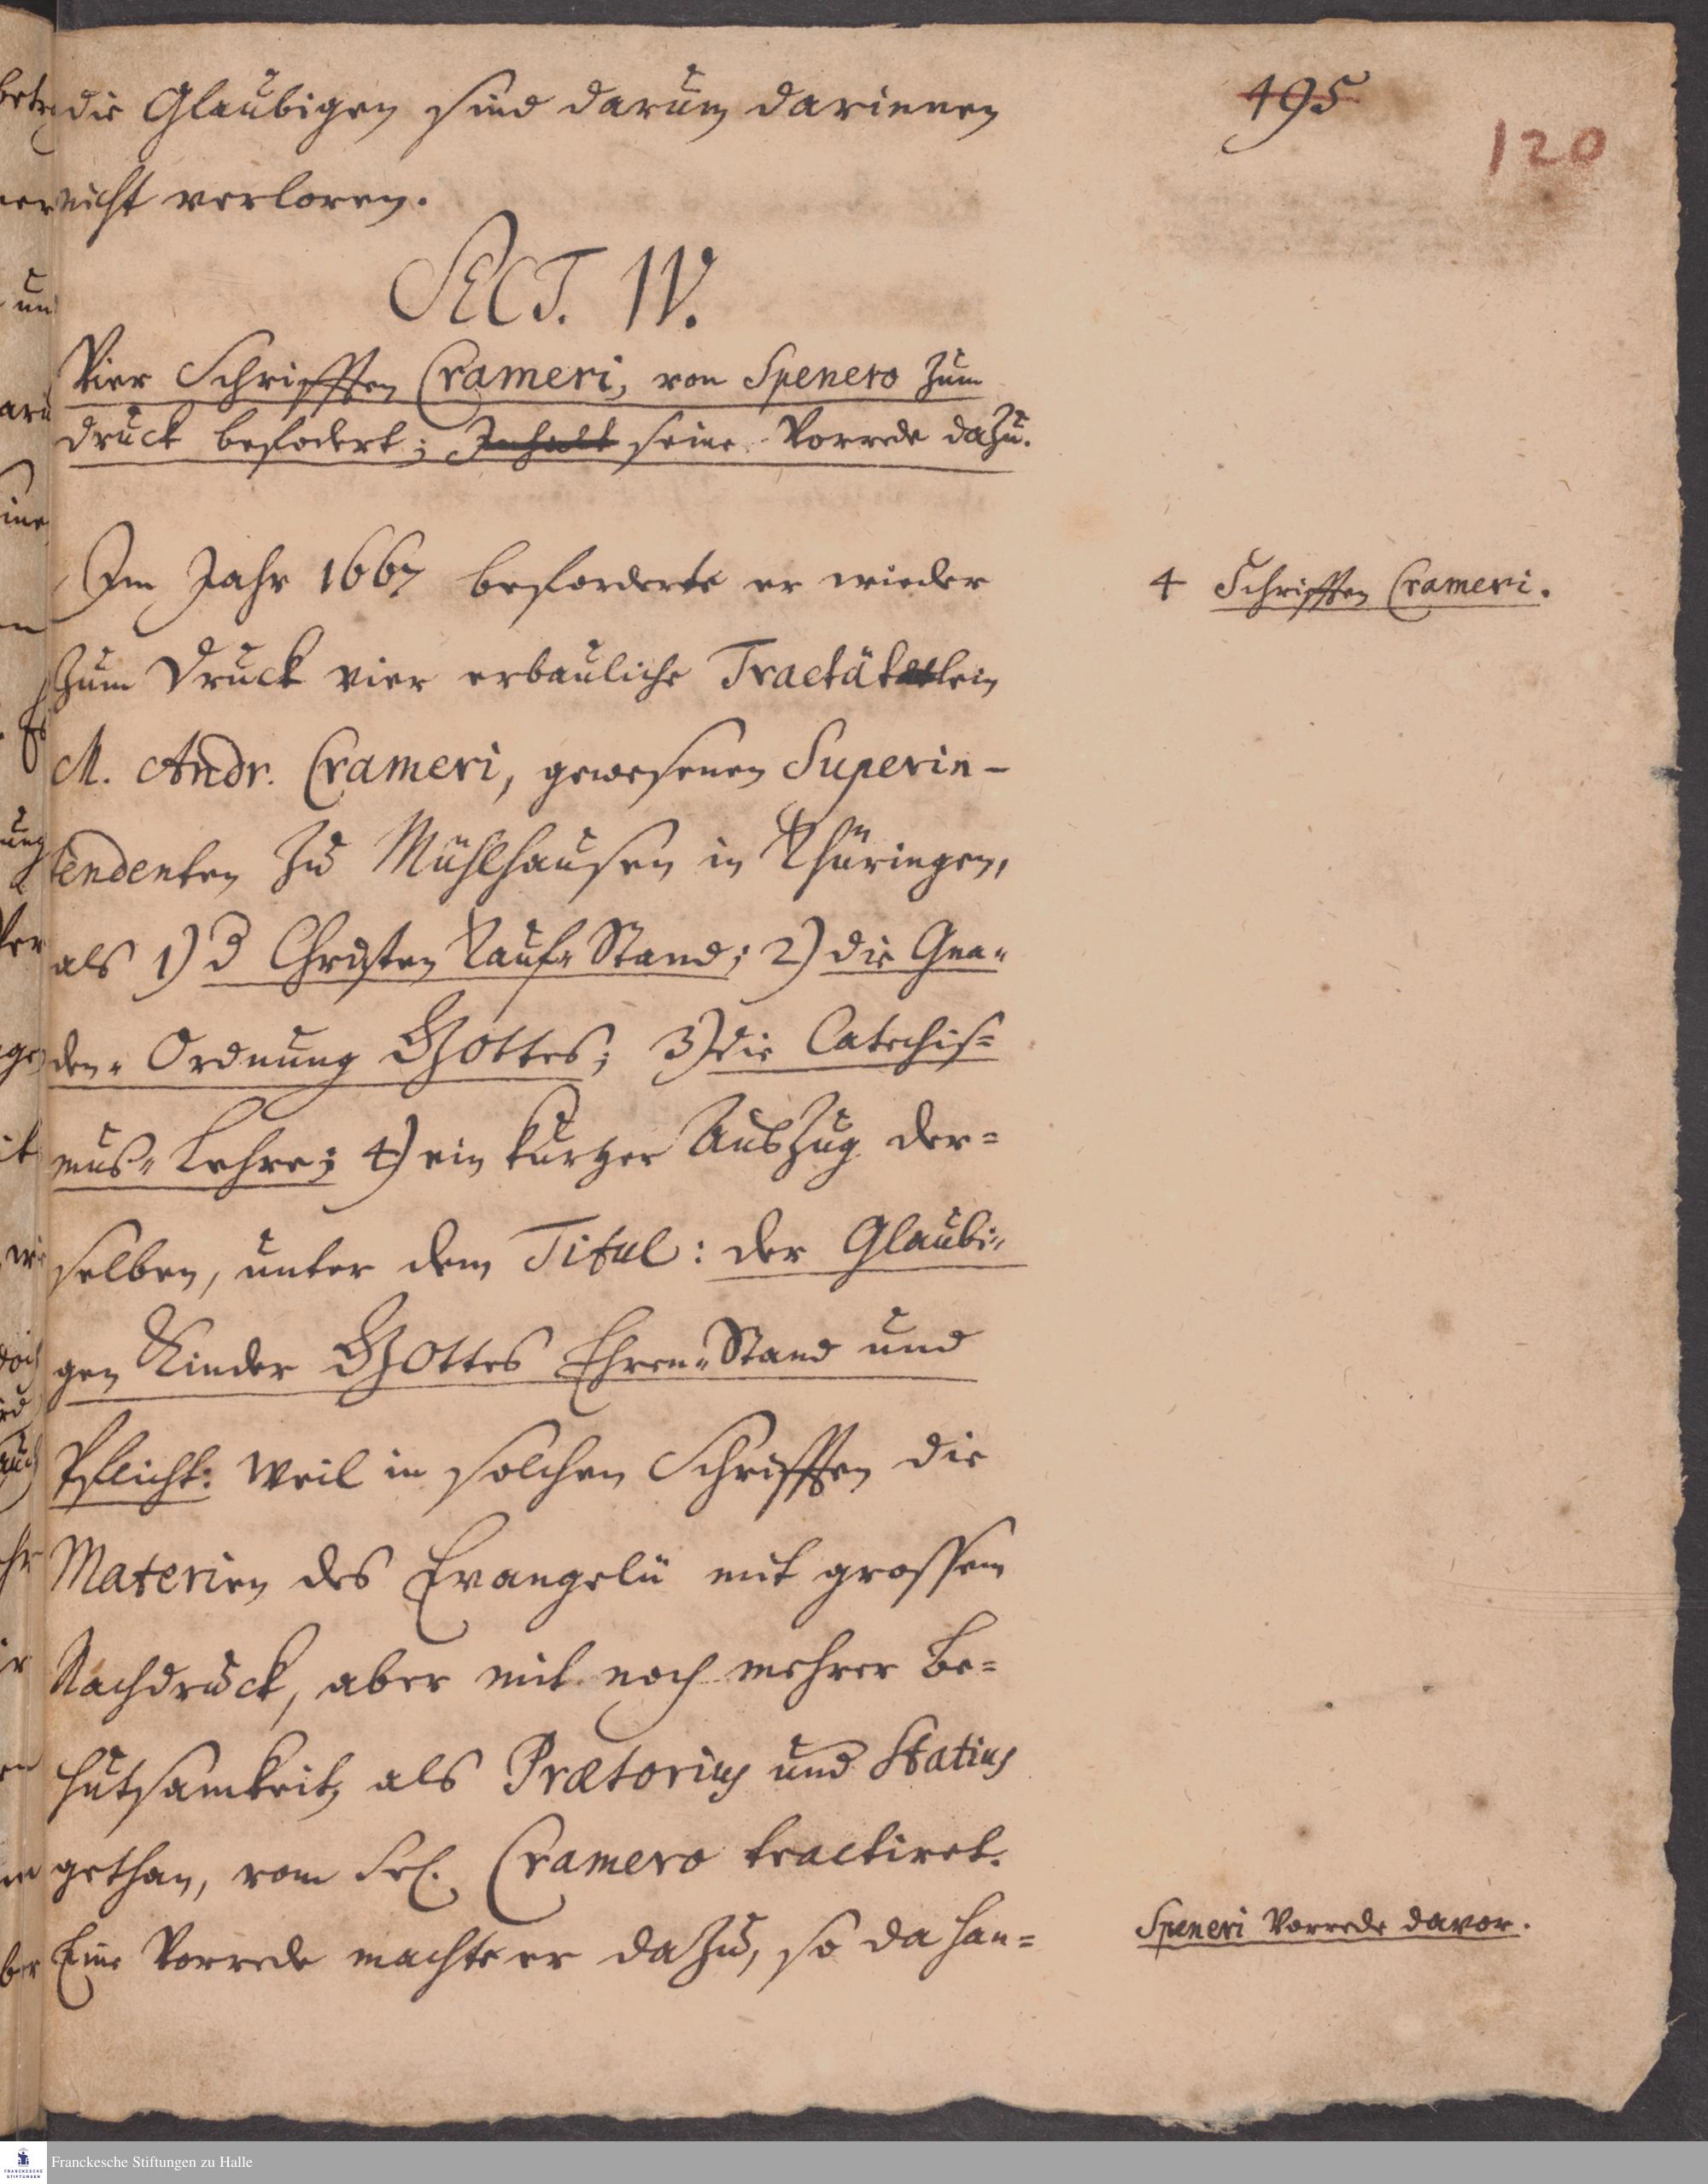 495
120
die Glaubigen sind darum darinnen
nicht verloren.
SECT. IV.
Vier Schrifften Crameri, von Spenero zum
druck befodert; Inhalt seine Vorrede dazu.
Im Jahr 1667 beforderte er wieder
4 Schrifften Crameri.
zum Druck vier erbauliche Tractätlein
M. Andr. Crameri, gewesenen Superin-
tendenten zu Mühlhausen in Thüringen,
als 1) d Christen Tauf-Stand; 2) die Gna-
den-Ordnung GOttes; 3) die Catechis-
mus-Lehre; 4) ein kurtzer Auszug der-
selben, unter dem Titul: der Glaubi-
gen Kinder GOttes Ehren-Stand und
Pflicht: Weil in solchen Schrifften die
Materien des Evangelii mit grossem
Nachdruck, aber mit noch mehrer Be-
hutsamkeit, als Prætorius und Statius
gethan, vom Sel. Cramero tractiret.
Eine Vorrede machte er dazu, so da han-
Speneri Vorrede davor.
Franckesche Stiftungen zu Halle